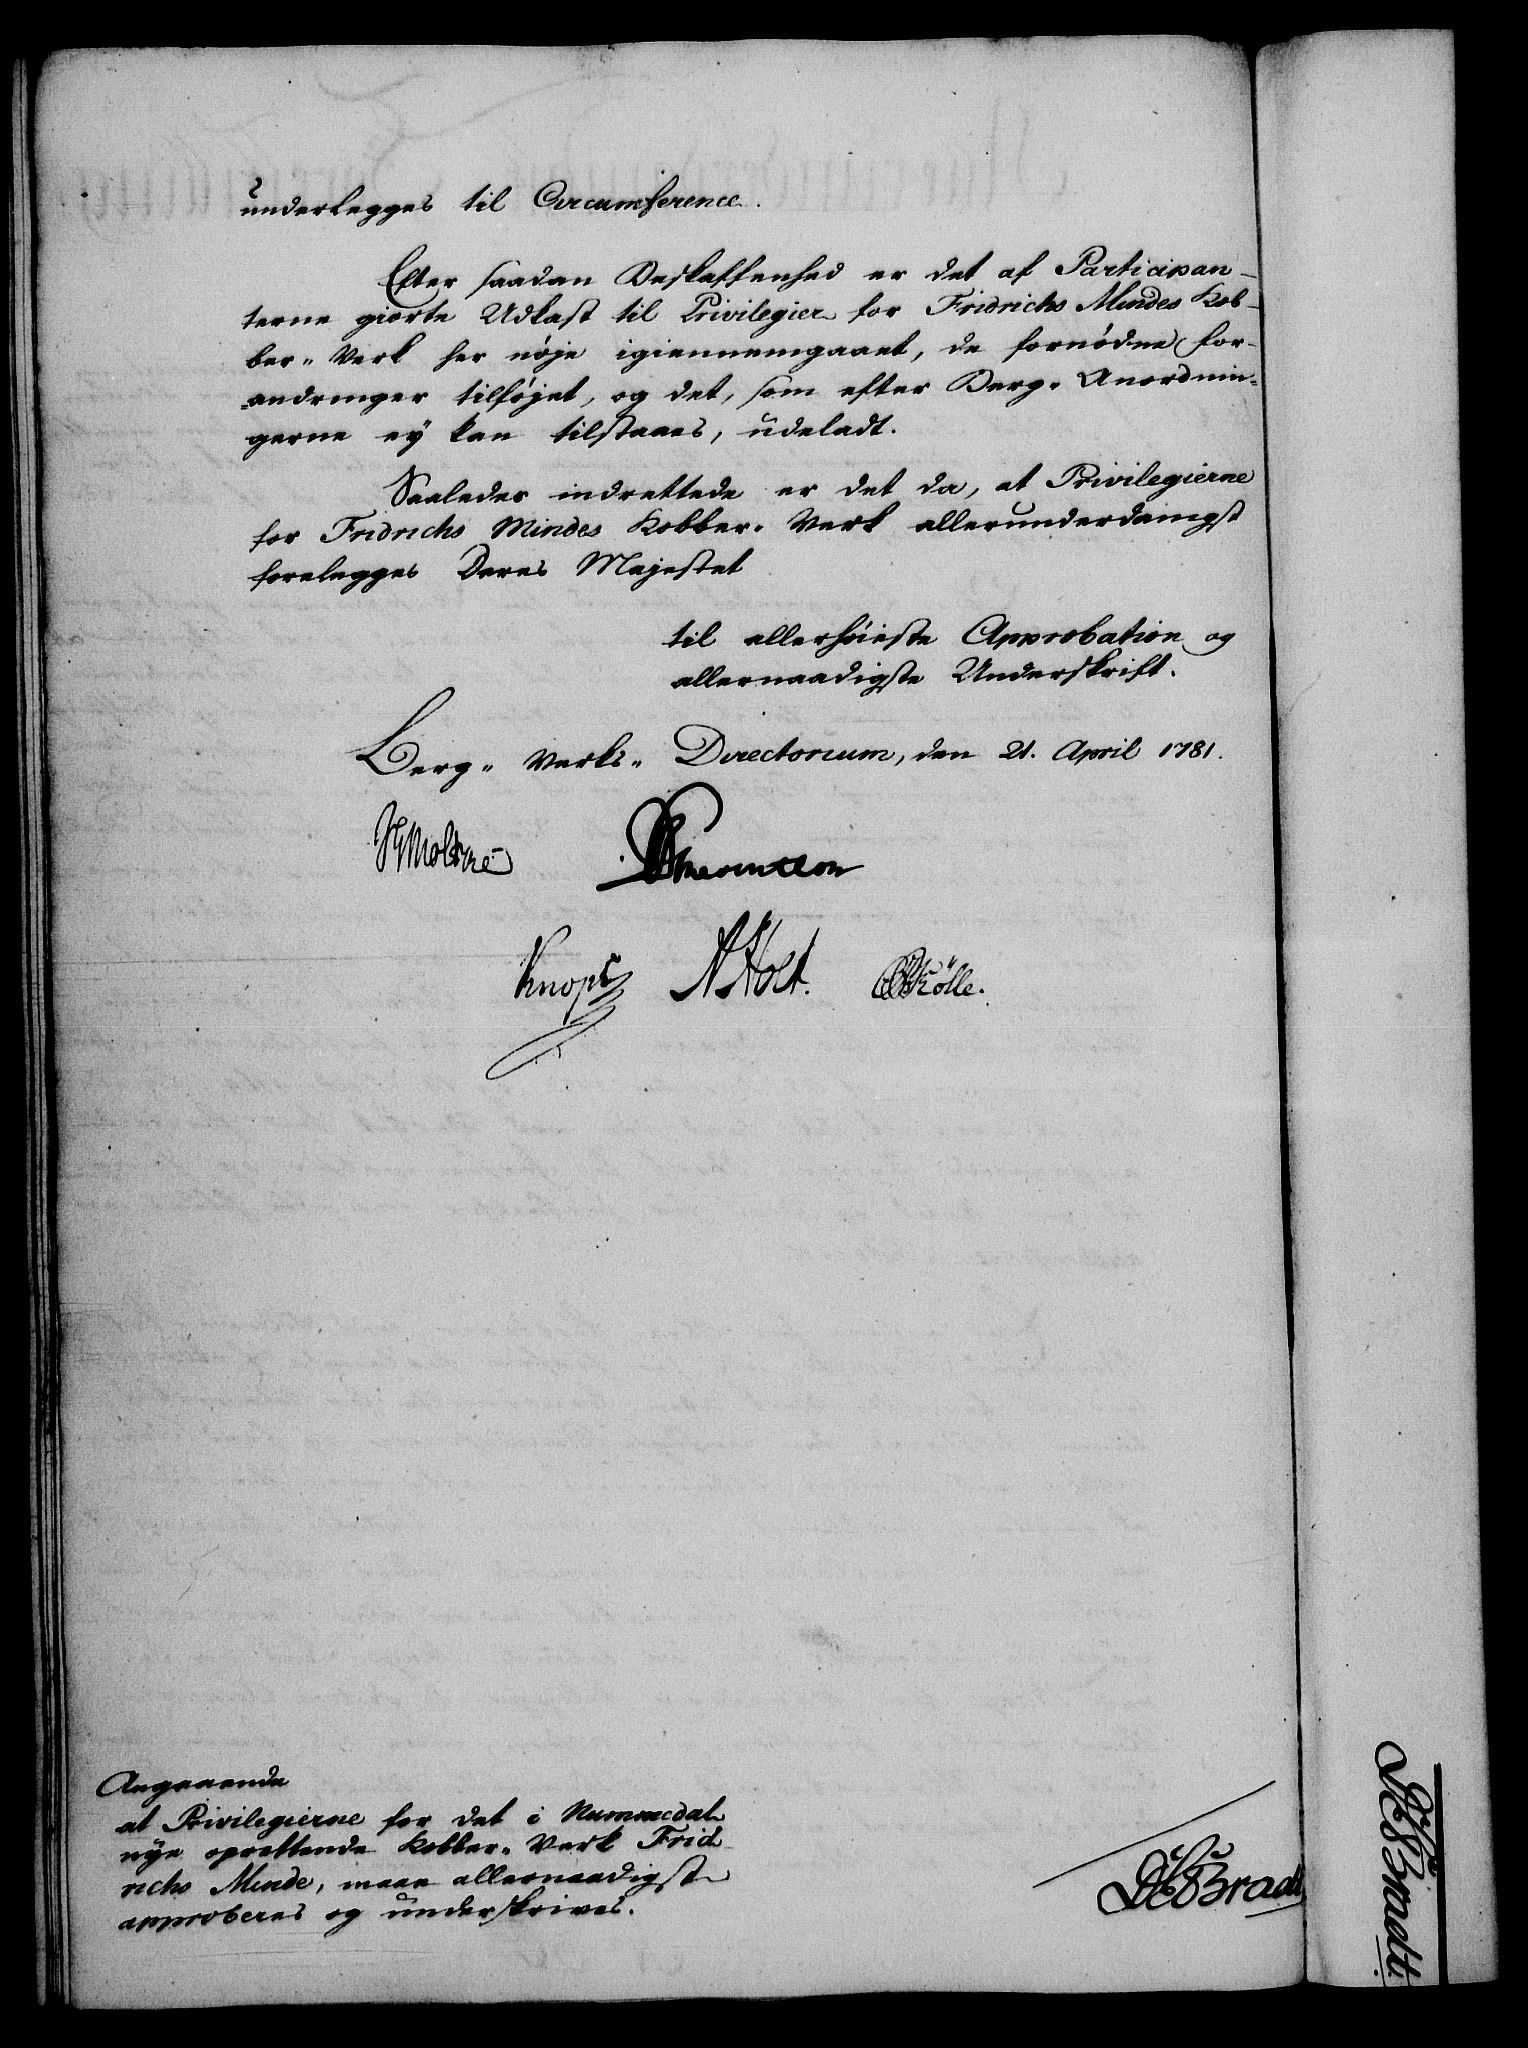 underlegges til Circumference.
Efter saadan Beskaffenhed er det af Participan-
terne giorte Udkast til Privilegier for Fridrichs Mindes Kob-
ber-Verk her nøje igiennemgaaet, de fornødne For-
andringer tilføjet, og det, som efter Berg-Anordnin-
gerne ey kan tilstaaes, udeladt.
Saaledes indrettede er det da, at Privilegierne
for Fridrichs Mindes Kobber-Verk allerunderdanigst
forelegges Deres Majestet
til allerhøieste Approbation og
allernaadigste Underskrift.
Berg-Verks-Directorium, den 21. April 1781.
Moltke
Knoph NHolt. Kölle.
Angaaende
at Privilegierne for det i Nummedal
nye oprettende Kobber-Verk Frid
richs Minde, maae allernaadigst
approberes og underskrives.
Bradt
Bradt.